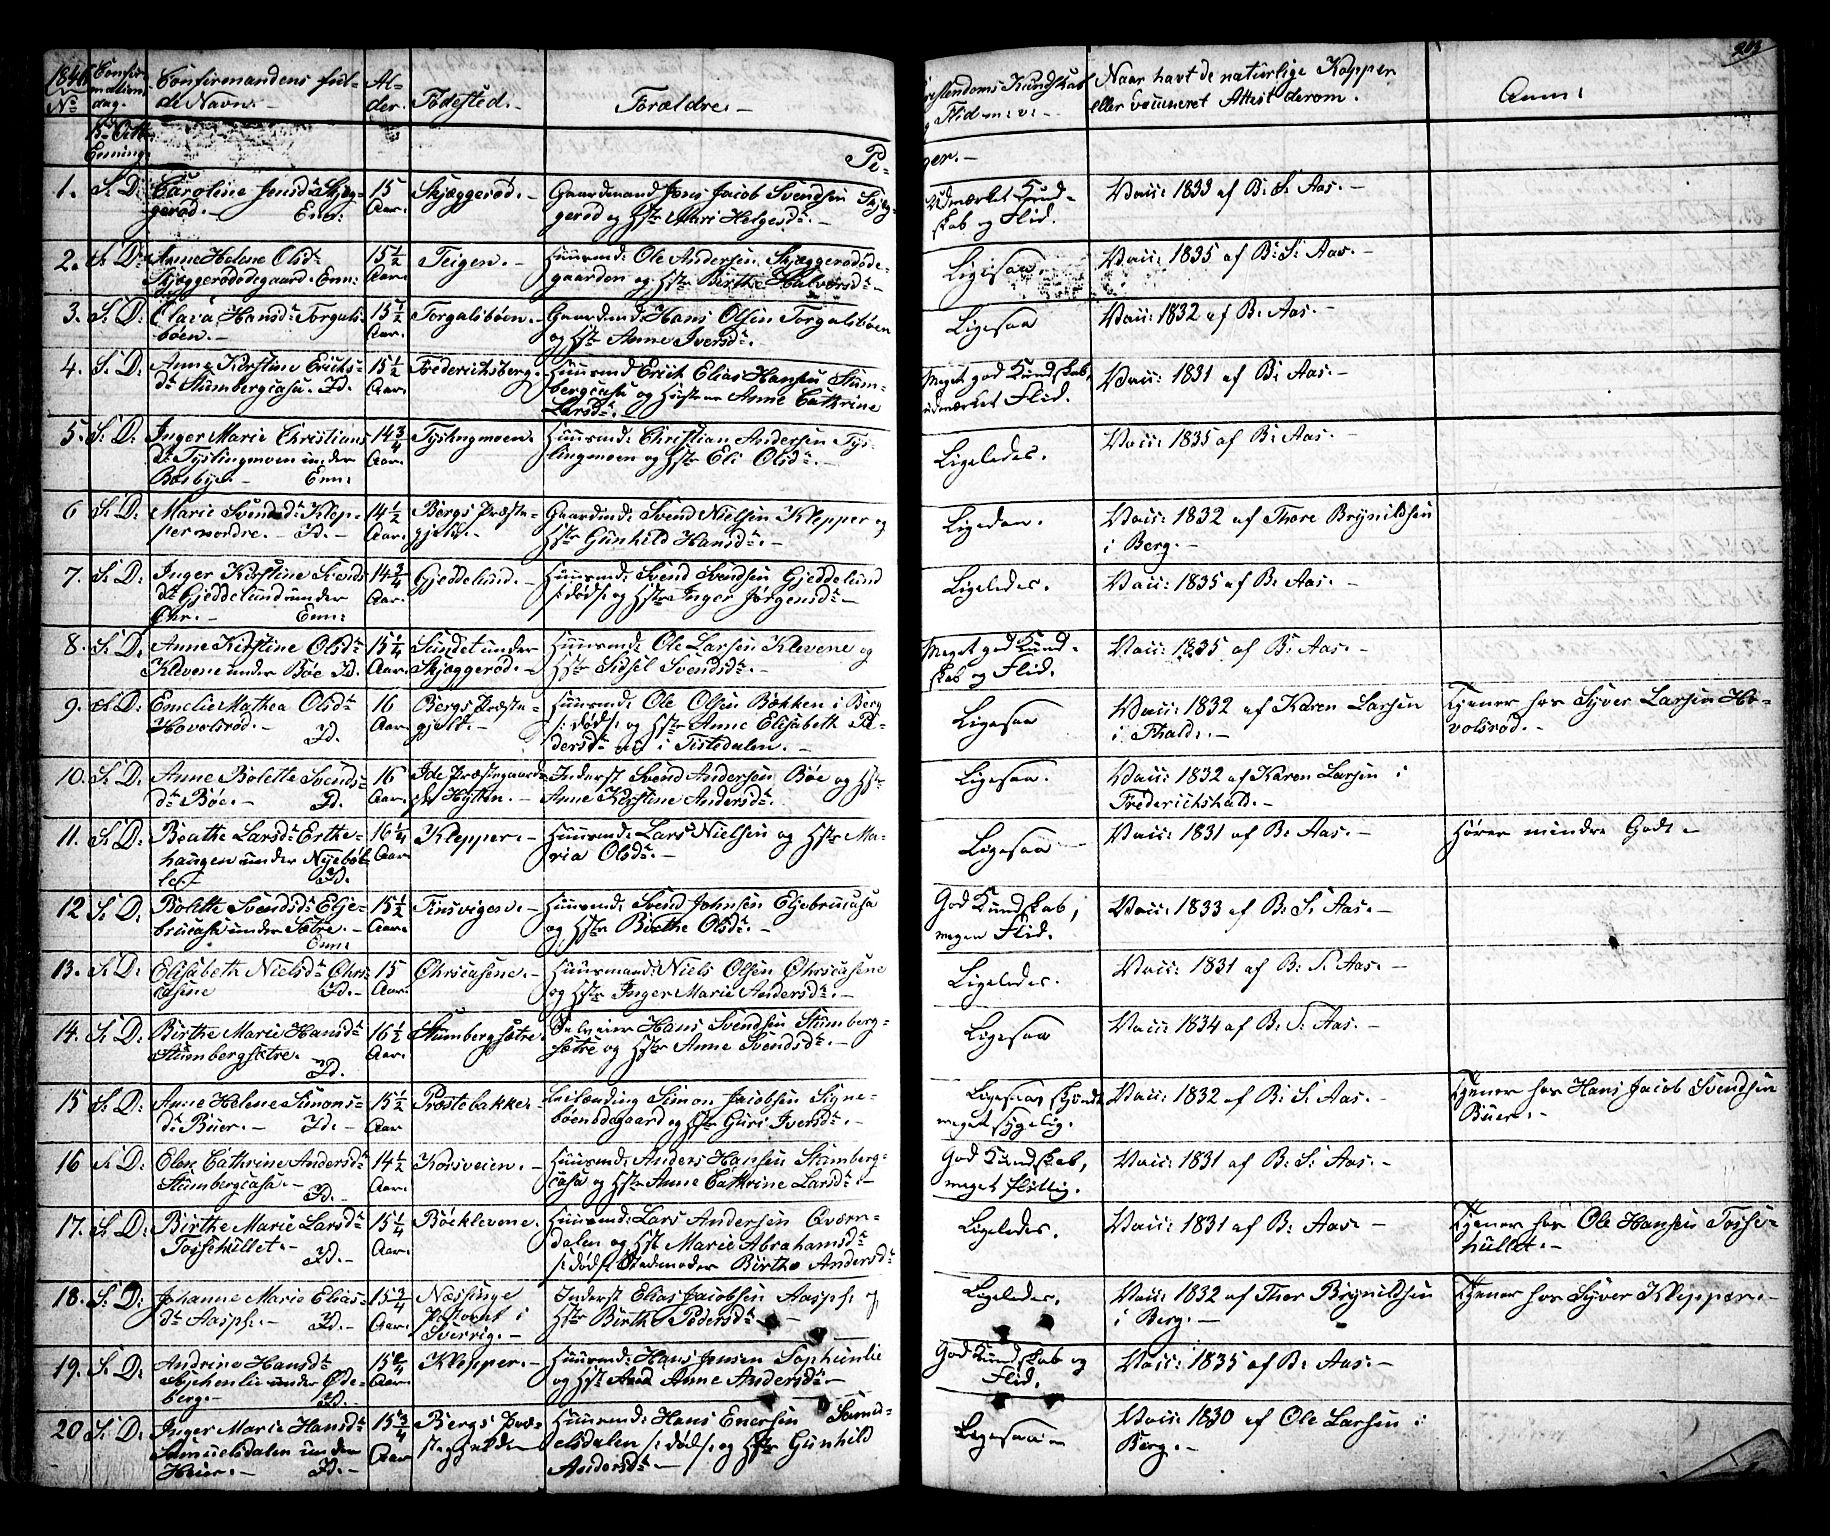 203
1846
No
Confir-
mations
dag.
Confirmandens ful-
de Navn.-
Al-
der.
Fødested.-
Forældre.-
Christendoms Kundskab
og Flid m: v: -
Naar havt de naturlige Kopper
eller vaccineret Attest derom.-
Anm:
Enning:
Pi-
ger.-
1. S. D: Caroline Jensdtr Skjæg-
gerød.- Enn:
15
Aar.
Skjæggerød.-
Gaardmand Jens Jacob Svendsen Skjæg-
gerød og Hstr Mari Helgesdtr.-
Udmærket Kund-
skab og Flid.
Vacc: 1833 af B: S: Aas.-
2. S. D: Anne Helene Olsdtr
Skjæggerødødegaard. Enn:
15 1/2
Aar.
Teigen.-
Huusmd: Ole Andersen Skjæggerødøde-
gaarden og Hstr Birthe Halvorsdtr.-
Ligesaa.
Vacc: 1835 af B: S: Aas.-
3. S. D: Olava Hansdtr Torgals-
bøen.-
15 1/2
Aar.
Torgalsbøen.-
Gaardmd: Hans Olsen Torgalsbøen
og Hstr Anne Iversdtr.-
Ligesaa
Vacc: 1832 af B: Aas.-
4. S. D: Anne Kirstine Erichs-
dtr Stumbergcasa. Id.
15 1/2
Aar.
Frederichsberg.
Huusmd Erich Elias Hansen Stum-
bergcasa og Hustrue Anne Cathrine
Larsdtr.-
Meget god Kundskab,
udmærket Flid.
Vacc: 1831 af B: Aas.-
5. S. D: Inger Marie Christians
dtr Tyslingmoen under
Bøsbye.- Enn:
14 3/4
Aar.
Tyslingmoen.
Huusmd: Christian Andersen Tys-
lingmoen og Hstr Eli Olsdtr.-
Ligeledes.
Vacc: 1835 af B: Aas.-
6 S. D: Marie Svendsdtr Klep-
per nordre.- Id.-
14 1/2
Aar.
Bergs Præste-
gjeld.-
Gaardmd: Svend Nielsen Klepper og
Hstr Gunhild Hansdtr.-
Ligedan.
Vacc: 1832 af Thore Brynildsen
i Berg.-
7. S. D: Inger Kirstine Svends
dtr Gjeddelund under
Øhr.- Enn:
14 3/4
Aar.
Gjeddelund.-
Huusmd: Svend Svendsen Gjeddelund
/: død :/ og Hstr Inger Jørgensdtr.-
Ligeledes.
Vacc: 1835 af B: Aas.-
8. S. D: Anne Kirstine Olsdtr
Klevene under Bøe Id.
15 1/4
Aar.
Sundet under
Skjæggerød.-
Huusmd: Ole Larsen Klevene og
Hstr Sidsel Svendsdtr.-
Meget god Kund-
skab og Flid.
Vacc: 1835 af B: Aas.-
9. S. D: Emelie Mathea Olsdtr
Hovolsrød.- Id.
16
Aar.
Bergs Præste-
gjeld.-
Huusmd: Ole Olsen Bækken i Berg
/: død :/ og Hstr Anne Elisabeth Pe-
dersdtr nu i Tistedalen.-
Ligesaa
Vacc: 1832 af Karen Larsen
i Fhald.-
Tjener hos Syver Larsen Ho-
volsrød.-
10. S. D: Anne Bolette Svends-
dtr Bøe.- Id.
16
Aar.
Ide Præstegaards
Pl: Hytten.-
Inderst Svend Andersen Bøe og Hstr
Anne Kirstine Andersdtr.
Ligesaa.
Vacc: 1832 af Karen Larsen i
Frederichshald.-
11. S. D: Beathe Larsdtr Erthe-
haugen under Nyebøl-
le.- Id.
16 1/4
Aar.
Klepper.-
Huusmd: Lars Nielsen og Hstr Ma-
ria Olsdtr.-
Ligesaa
Vacc: 1831 af B: Aas.-
Hører mindre Godt.-
12 S. D: Bolette Svendsdtr Elje-
brucasa under Sætre.-
Enn:
15 1/2
Aar.
Tinsvigen.-
Huusmd: Svend Johnsen Eljebrucasa
og Hstr Birthe Olsdtr.-
God Kundskab,
megen Flid.
Vacc: 1833 af B: S: Aas.-
13. S. D: Elisabeth Nielsdtr Øhrs-
casene Id.-
15
Aar.
Øhrscasene.-
Huusmand: Niels Olsen Øhrscasene
og Hstr Inger Marie Andersdtr.-
Ligeledes.
Vacc: 1831 af B: S: Aas.-
14. S. D: Birthe Marie Hansdtr
Stumbergsætre.
Id.
16 1/2
Aar.
Stumbergsætre.
Selveier Hans Svendsen Stumberg-
sætre og Hstr Anne Svendsdtr.-
Ligesaa
Vacc: 1834 af B: S: Aas.-
15 S. D: Anne Helene Simons-
dtr Buer.- Id.-
15 1/2
Aar.
Prestebakke.-
Leilending Simon Jacobsen Signe-
bøensødegaard og Hstr Guri Iversdtr.-
Ligesaa, skjøndt
meget sygelig.
Vacc: 1832 af B: S: Aas.-
Tjener hos Hans Jacob Svendsen
Buer.-
16 S. D: Elen Cathrine Andersdtr
Stumbergcasa.- Id.-
14 1/2
Aar.
Korsveien.-
Huusmd: Anders Hansen Stumberg-
casa og Hstr Anne Cathrine Larsdtr.-
God Kundskab,
meget flittig.
Vacc: 1831 af B: S: Aas.-
17. S. D: Birthe Marie Larsdtr
Tossehullet.- Id.
15 1/4
Aar.
Bøeklevene.
Huusmd: Lars Andersen Qværn-
dalen og Hst Marie Abrahamsdtr
/: død :/ Stedmoder Birthe Andersdtr
Ligeledes.
Vacc: 1831 af B: Aas.-
Tjener hos Ole Hansen Tosse-
hullet.-
18. S. D: Johanne Marie Elias-
dtr Aasph.- Id.-
15 3/4
Aar.
Næssinge
Pastorat i
Sverrig.-
Inderst Elias Jacobsen Aasph: og
Hstr Birthe Pedersdtr.-
Ligeledes.
Vacc: 1832 af Thor Brynildsen
i Berg.-
Tjener hos Syver Klepper.-
19. S. D: Andrine Hansdtr
under Øde-
berg.- Id.
15
Aar.
Klepper.-
Huusmd: Hans Jensen
og Hstr Anne Andersdtr.-
God Kundskab og
Flid.
Vacc: 1835 af B: Aas.-
20 S. D: Inger Marie Hansdtr
Samuelsdalen under
Heier.- Id.-
15 3/4
Aar
Bergs Præ-
stegjeld.-
Huusmd: Hans Enersen Samu-
elsdalen /: død :/ og Hstr Gunhild
Andersdtr.-
Ligesaa.-
Vacc: 1830 af Ole Larsen i
Berg.-